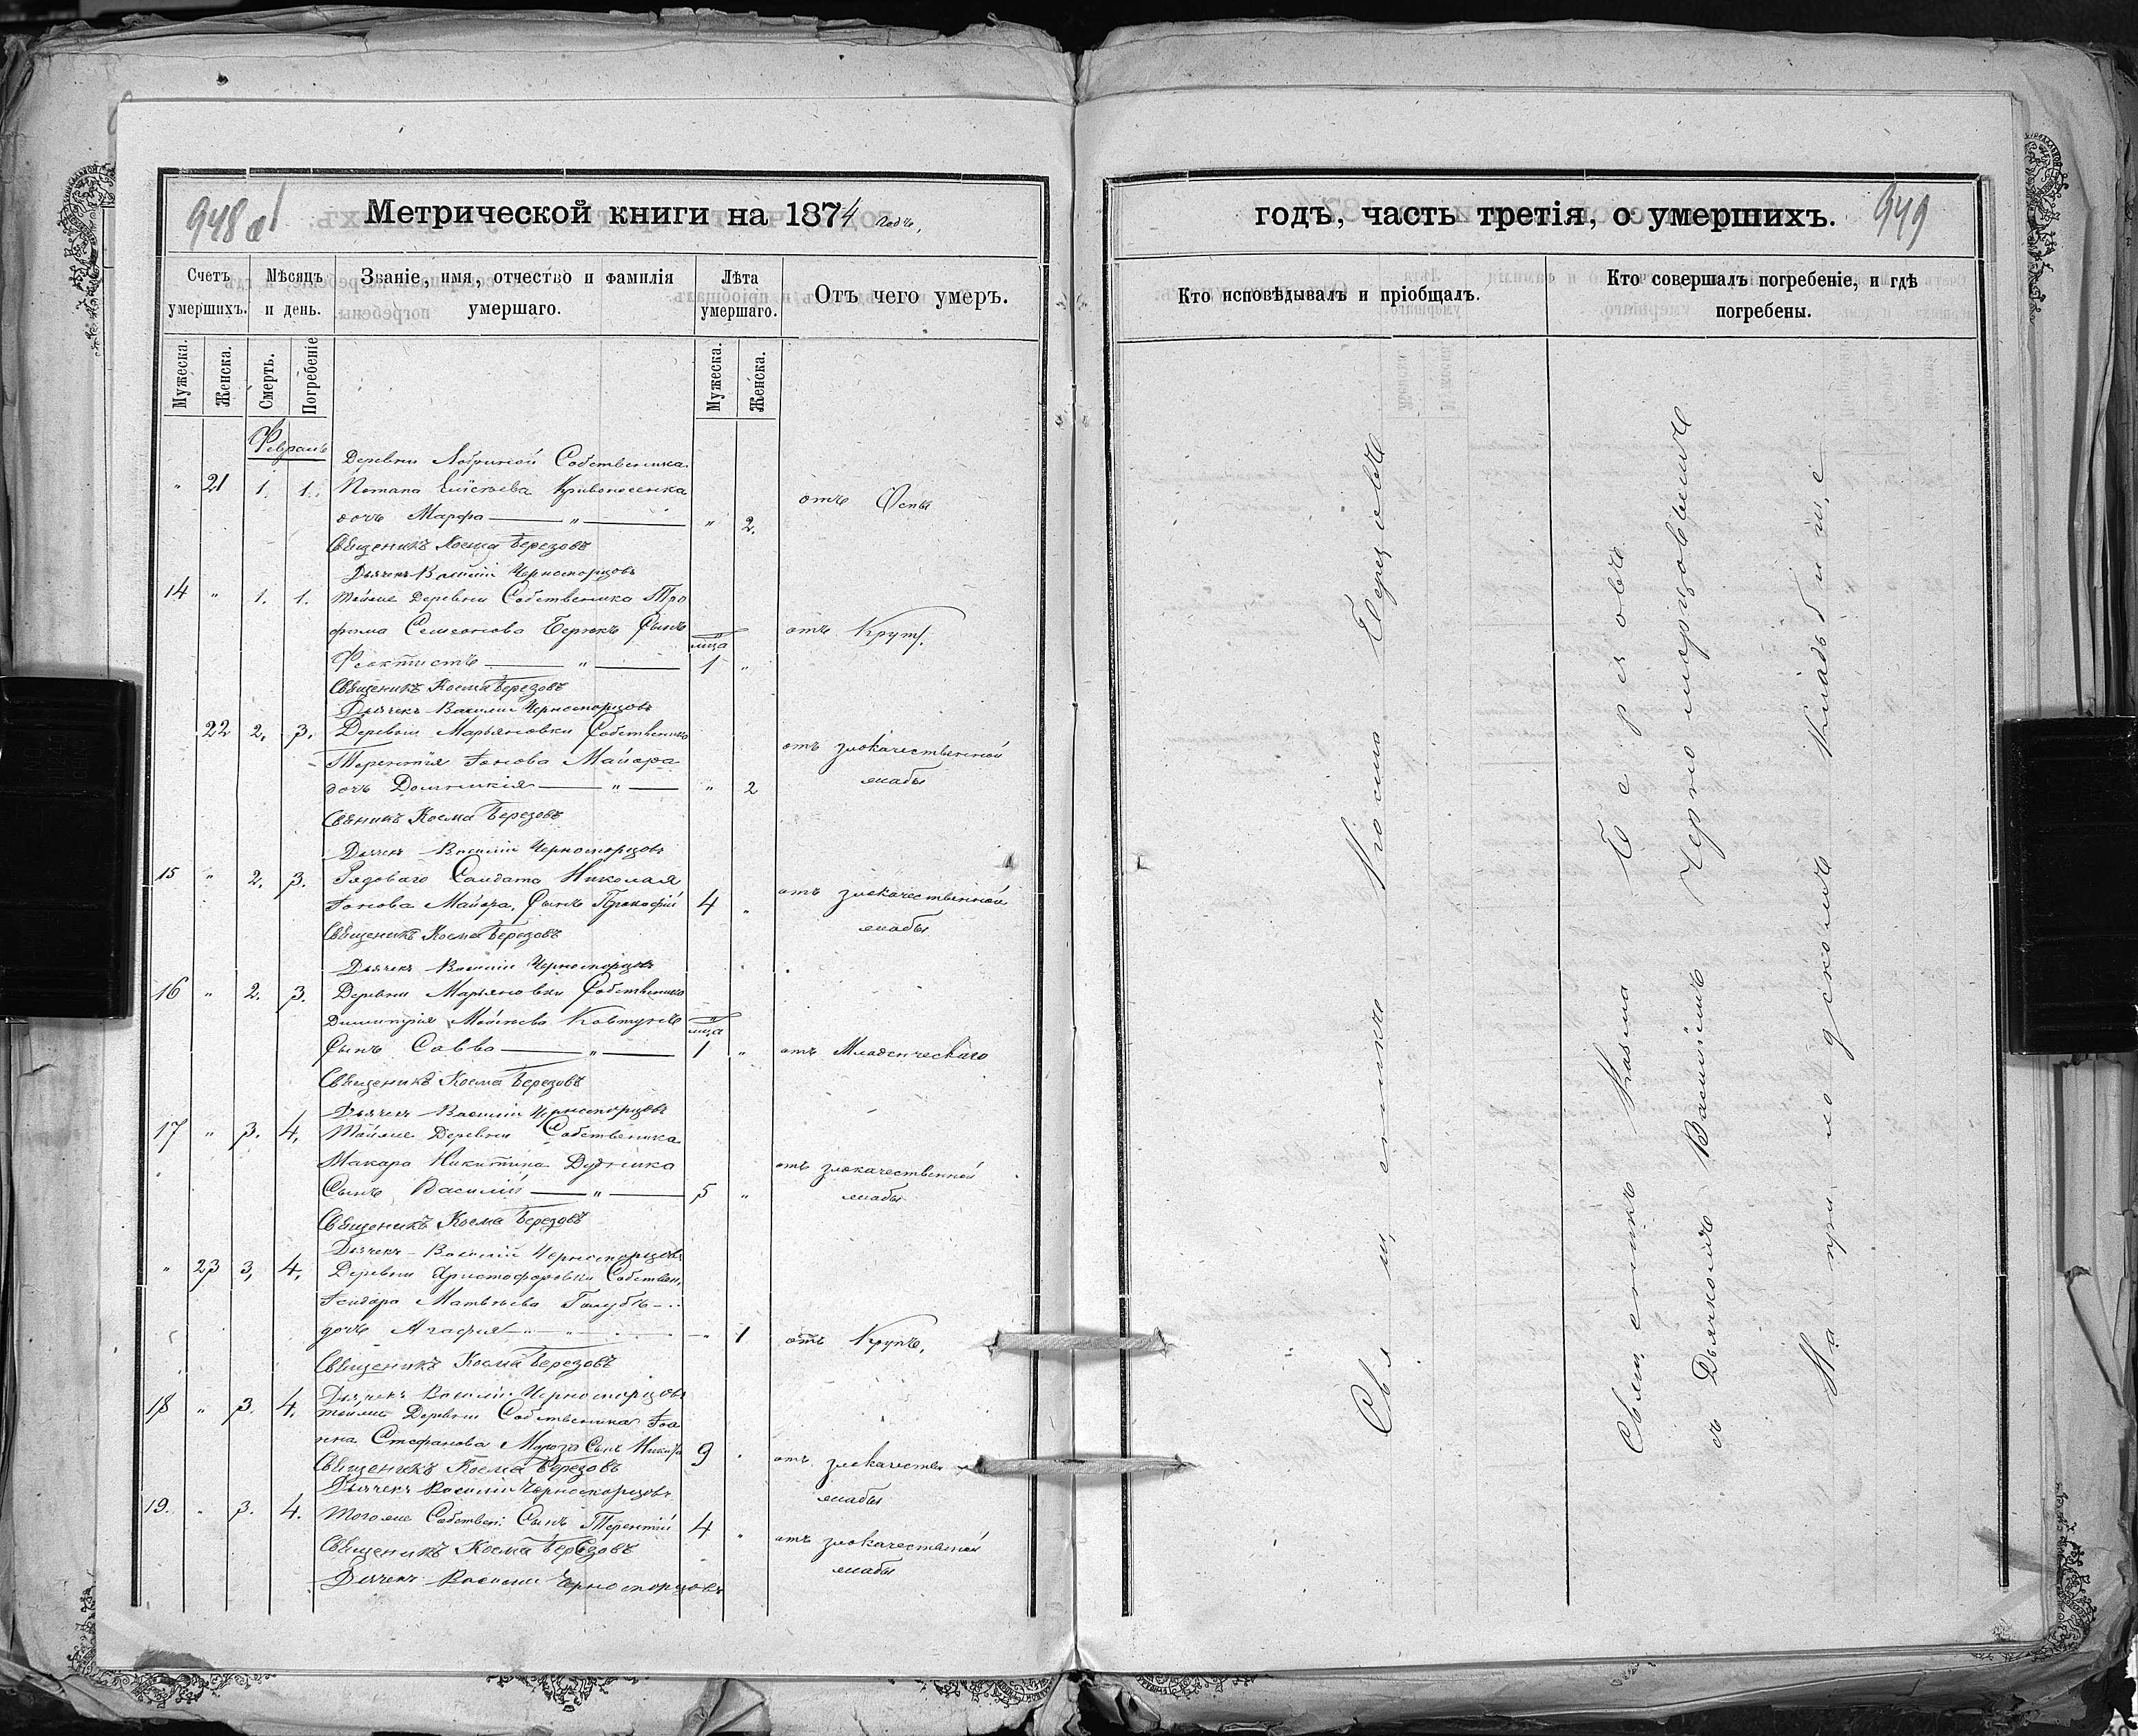 948 об
Метрической книги на 1874 годъ,
Счетъ умершихъ.
Мѣсяцъ и день.
Званіе, имя, отчество и фамилія умершаго.
Лѣта умершаго.
Отъ чего умеръ.
Мужеска.
Женска.
Смерть.
Погребеніе
Мужеска.
Женска.
Февраль
Деревни Собственника
" 21 1. 1. Потапа Кривоносенка отъ Оспы
дочь Марфа — " — " 2.
Священикъ Косма Березовъ
Дьячекъ Василий Черноморцовъ
14 " 1. 1. Тойже Деревни Собственика Тро
фима Семеонова Сынъ отъ Круп.
Феоктистъ — " — 1 "
Священикъ Косма Березовъ
Дьячекъ Василий Черноморцовъ
22 2. 3. Деревни Марьяновки Собственика
Терентія Іонова Майора отъ злокачественной
дочь Домникія — " — " 2 жабы
Косма Березовъ
Дьячекъ Василій Черноморцовъ
15 " 2. 3. Рядоваго Солдата Николая
Іонова Майора, Сынъ Прокофій 4 " отъ злокачественной
Священикъ Косма Березовъ жабы
Дьячекъ Василій Черноморцовъ
16 " 2. 3. Деревни Марьяновки Собственика
Димитрія Ковтунъ
Сынъ Савва — " — 1 " отъ Младенческаго
Священикъ Косма Березовъ
Дьячекъ Василій Черноморцовъ
17 " 3. 4. Тойже Деревни Собственика
Макара Никитина Дудника отъ злокачественной
Сынъ Василий — " — 5 " жабы
Священикъ Косма Березовъ
Дьячекъ Василій Черноморцовъ
" 23 3, 4. Деревни Христофоровки Собствен.
Матвѣева Голубъ
дочь Агафия " 1 отъ Крупъ,
Священикъ Косма Березовъ
Дьячекъ Василий Черноморцовъ
18 " 3. 4. Тойже Деревни Собственика Іоа
нна Стефанова Мороза Сынъ Никита 9 отъ злокачествен
Священикъ Косма Березовъ
Дьячекъ Василий Черноморцовъ жабы
19. " 3. 4. Тогоже Собствен: Сынъ Терентий 4 " отъ злокачественой
Священикъ Косма Березовъ жабы
Дьячекъ Василий Черноморцовъ
годъ, часть третія, о умершихъ.
949
Кто исповѣдывалъ и пріобщалъ.
Кто совершалъ погребеніе, и гдѣ погребены.
Священикъ Косма Березовъ
Священикъ Косма Березовъ
съ Дьячкомъ Василіемъ Черноморцовымъ
На приходскомъ Кладбищѣ